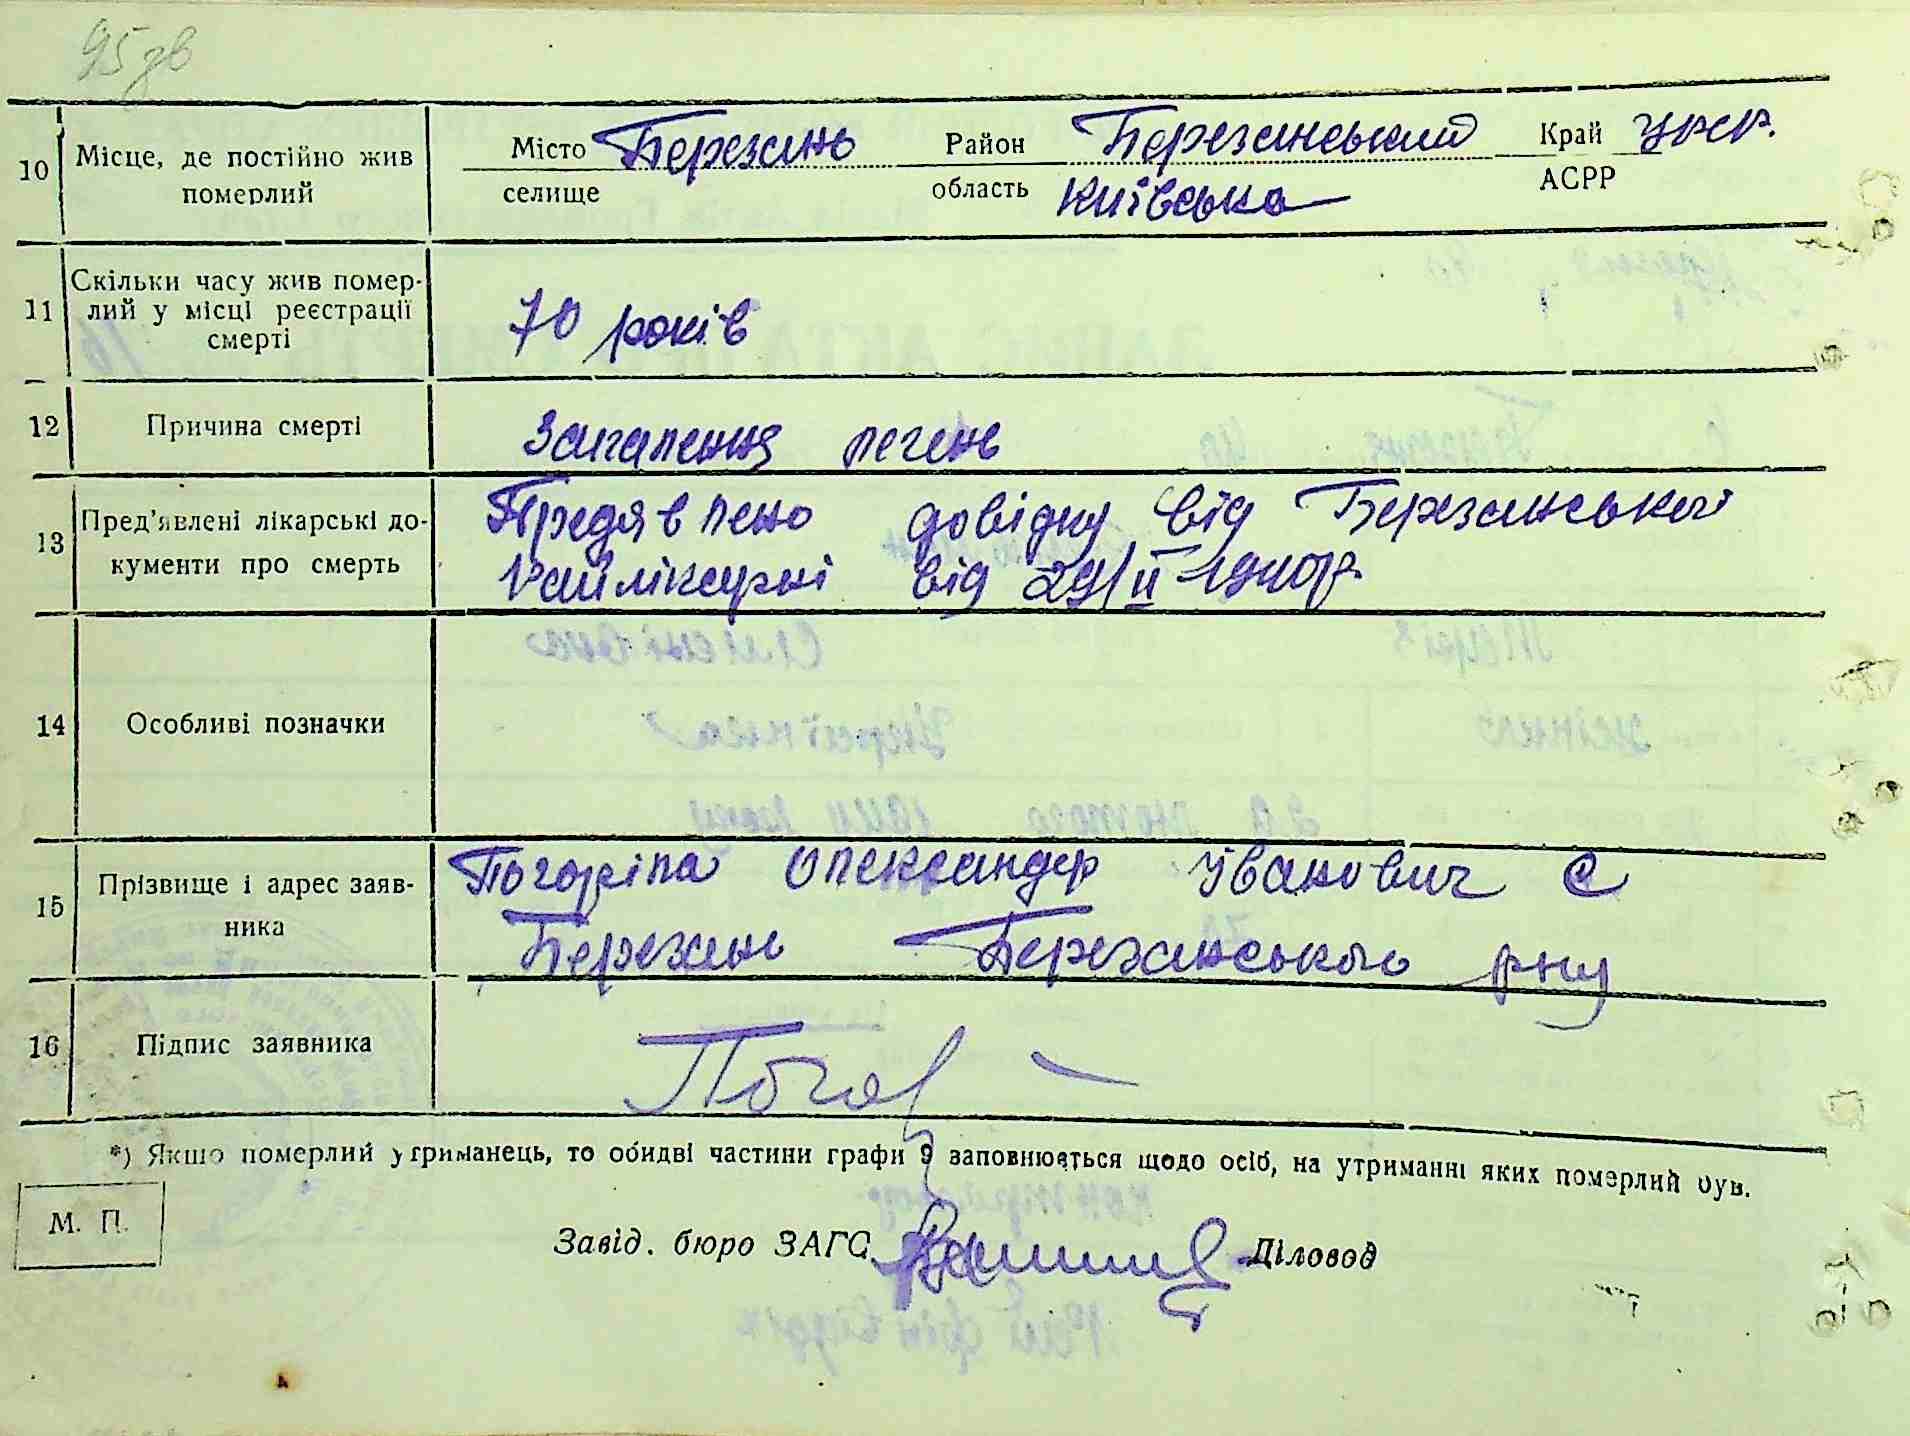 95зв
10 Місце, де постійно жив Місто Березань Район Березанський Край УРСР.
померлий селище область Київська АСРР
11 Скільки часу жив помер-
лий у місці реєстрації 70 років
смерті
12 Причина смерті Запалення легень
13 Пред'явлені лікарські до- Предявлено довідку від Березанської
кументи про смерть Райлікарні від 29/II-1940р.
14 Особливі позначки
15 Прізвище і адрес заяв- Погоріла Олександр Іванович с
ника Березань Березанського рну
16 Підпис заявника
*) Якщо померлий утриманець, то обидві частини графи 9 заповнюються щодо осіб, на утриманні яких померлий був.
М. П.
Завід. бюро ЗАГС Діловод